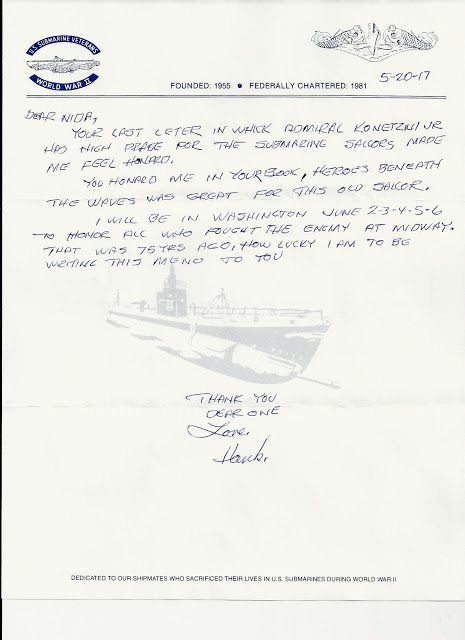 U.S. SUBMARINE VETERANS
WORLD WAR II
FOUNDED: 1955 • FEDERALLY CHARTERED: 1981
5-20-17
DEAR NIDA,
YOUR LAST LETER IN WHICK ADMIRAL KONETZNI JR
HAS HIGH PRAISE FOR THE SUBMARINE SAILORS, MADE
ME FEEL HONARD.
YOU HONARD ME IN YOUR BOOK, HEROES BENEATH
THE WAVES WAS GREAT FOR THIS OLD SAILOR.
I WILL BE IN WASHINGTON JUNE 2-3-4-5-6
TO HONOR ALL WHO FOUGHT THE ENEMY AT MIDWAY.
THAT WAS 75 YRS AGO, HOW LUCKY I AM TO BE
WRITING THIS MEMO TO YOU
THANK YOU
DEAR ONE
Love,
Hank.
DEDICATED TO OUR SHIPMATES WHO SACRIFICED THEIR LIVES IN U.S. SUBMARINES DURING WORLD WAR II